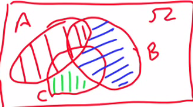 A
Ω
B
C